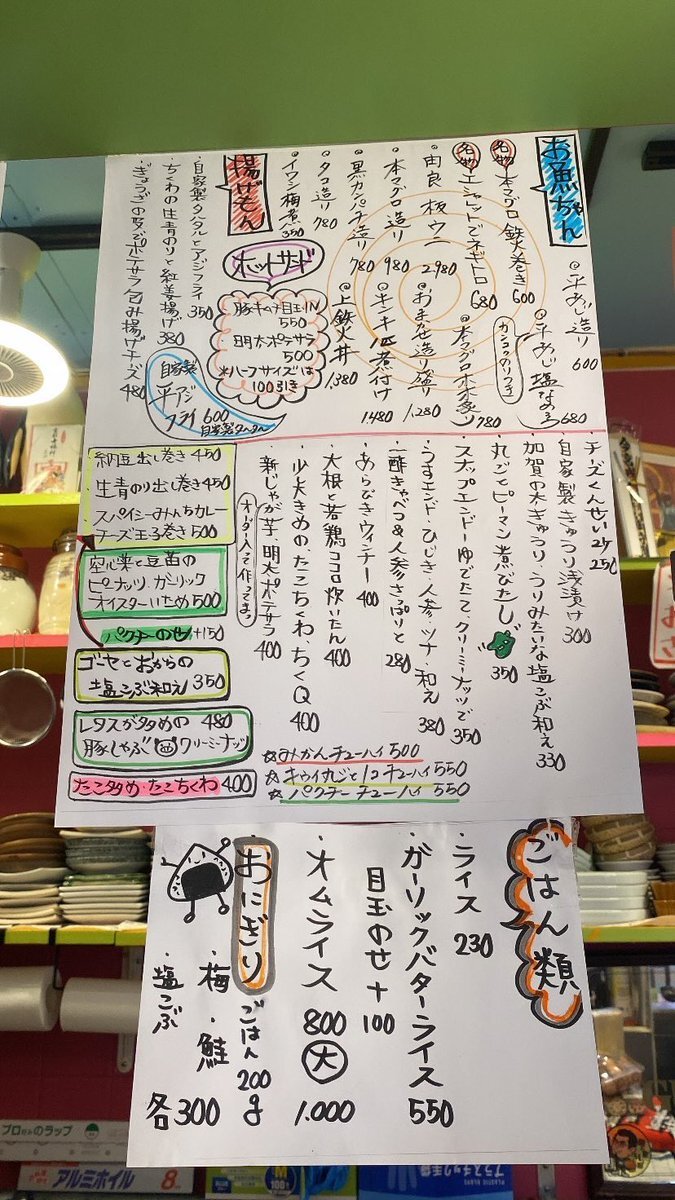 お魚ちゃん
名物 本マグロ鉄火巻き 600
名物 エシャレットでネギトロ 680
由良 板ウニ 2980
本マグロ造り 980
黒カンパチ造り 780
タコ造り 780
イワシ梅煮 350
平あじ造り 600
平あじ塩なめろ 680
本マグロ水菜巻り 780
おまかせ造り盛り 1,280
キンキ一匹煮付け 1480
上鉄火丼 1,380
揚げもん
・自家製タルタルとアジフライ 350
・ちくわの生青のりと紅姜揚げ 380
・ぎょうざの皮でポテサラ包み揚げチーズ 480
自家製
平アジ
フライ 600
自家製タルタル
ホットサンド
豚キムチ目玉IN
550
明太ポテサラ
500
*ハーフサイズは
100引き
チーズくんせい2ケ 250
自家製きゅうり浅漬け 300
加賀の太きゅうり、うりみたいな塩こぶ和え 330
丸ごとピーマン煮びたし 350
スナップエンドーゆでたて、クリーミーナッツで 350
うすエンド、ひじき、人参、ツナ、和え 380
一酢きゃべつ&人参さっぱりと 280
あらびきウィンナー 400
大根と若鶏ココロ炊いたん 400
・少し大きめの、たこちくわ、ちくQ 400
・新じゃが芋、明太ポテサラ 400
オーダー入って作ってます
・納豆出し巻き 450
・生青のり出し巻き 450
・スパイシーみんちカレー
チーズ玉子巻き 500
空心菜と豆苗の
ピーナッツ、ガーリック
オイスターいため 500
パクチーのせ +150
ゴーヤとおからの
塩こぶ和え 350
レタスが多めの 480
豚しゃぶ クリーミーナッツ
たこ多め・たこちくわ 400
☆みかんチューハイ 500
☆キウイ丸ごと1コチューハイ 550
☆パクチーチューハイ 550
ごはん類
・ライス 230
・ガーリックバターライス 550
目玉のせ+100
・オムライス 800
大 1.000
おにぎり ごはん200g
・梅・鮭
・塩こぶ
各300
プロ好みのラップ
アルミホイル